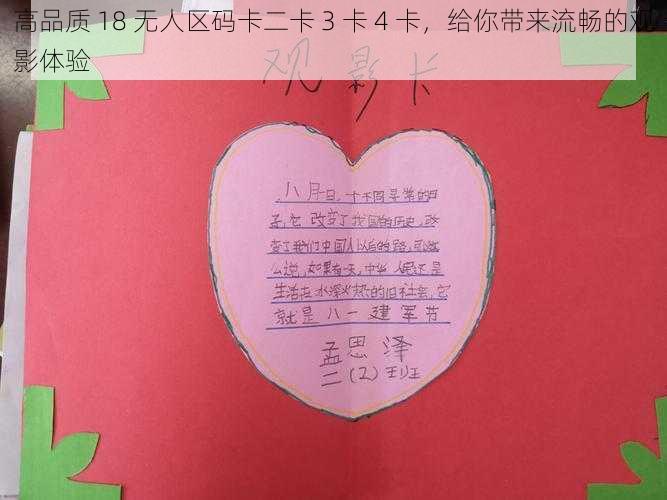 高品质 18 无人区码卡二卡 3 卡 4 卡，给你带来流畅的观
影体验
观影卡
八月一日，一个不同寻常的日
子，它改变了我国的历史，改
变了我们中国人以后的路，可以这
么说，如果有一天，中华人民还是
生活在水深火热的旧社会，它
就是八一建军节
孟思泽
二（2）班